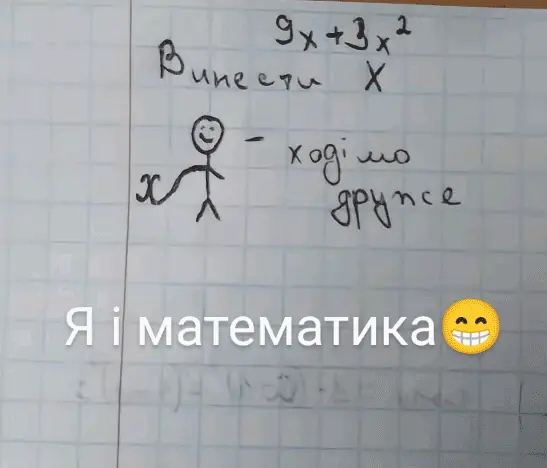 9x+3x²
Винести x
x
- ходімо
друже
Я і математика😁